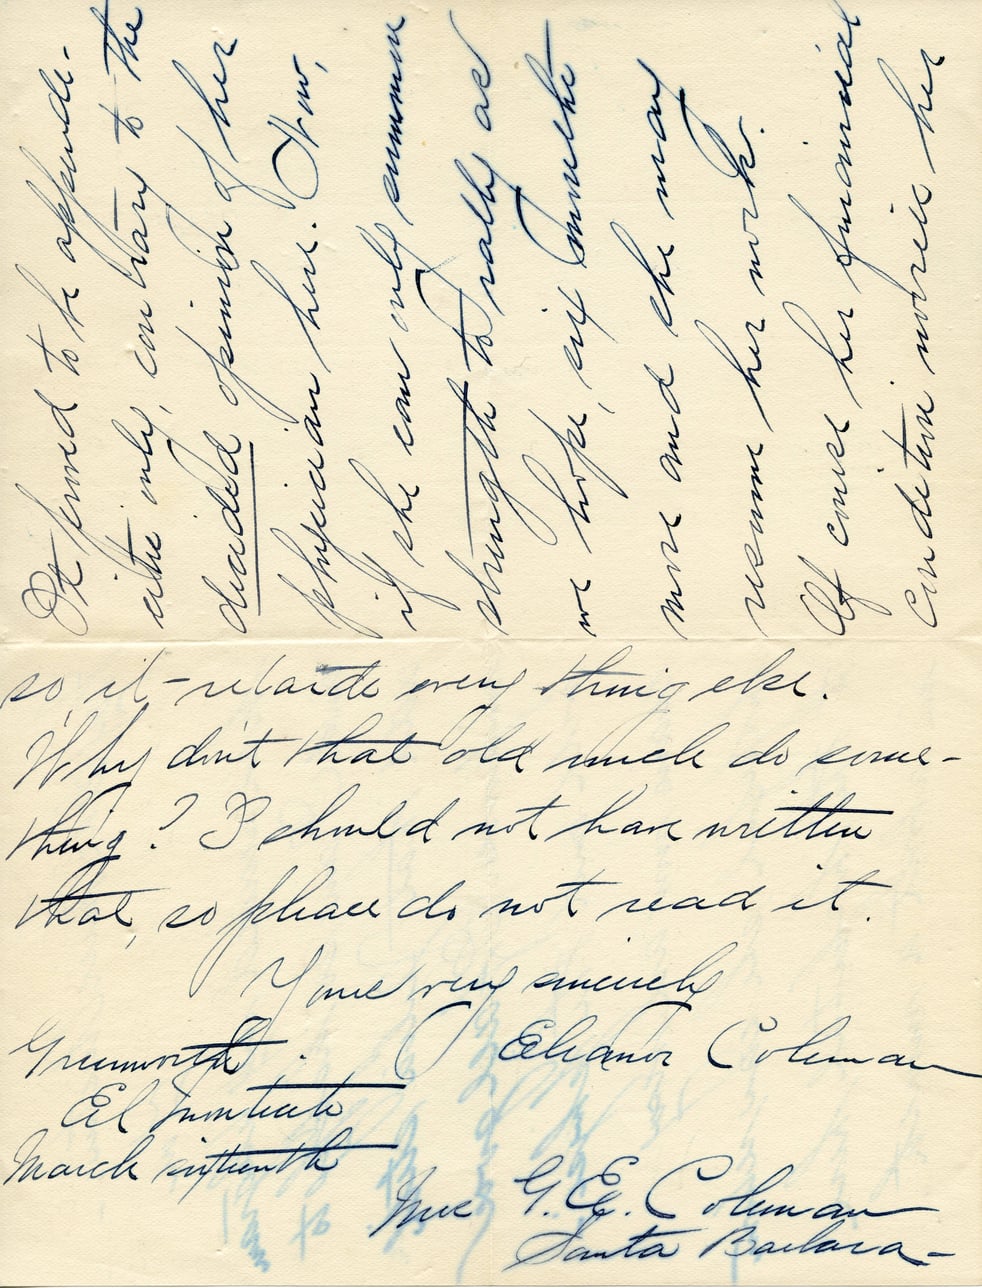 It proved to be appendi-
citis only, contrary to the
decided opinion of her
physician here. Now,
if she can only summon
strength to rally as
we hope, six months
more and she may
resume her work.
Of course her financial
condition worries her
so, it retards every thing else.
Why don't that old uncle do some-
thing? I should not have written
that, so please do not read it.
Yours very sincerely
Eleanor Coleman
Greenworth.
El Montecito
March sixteenth
Mrs G. E. Coleman
Santa Barbara-